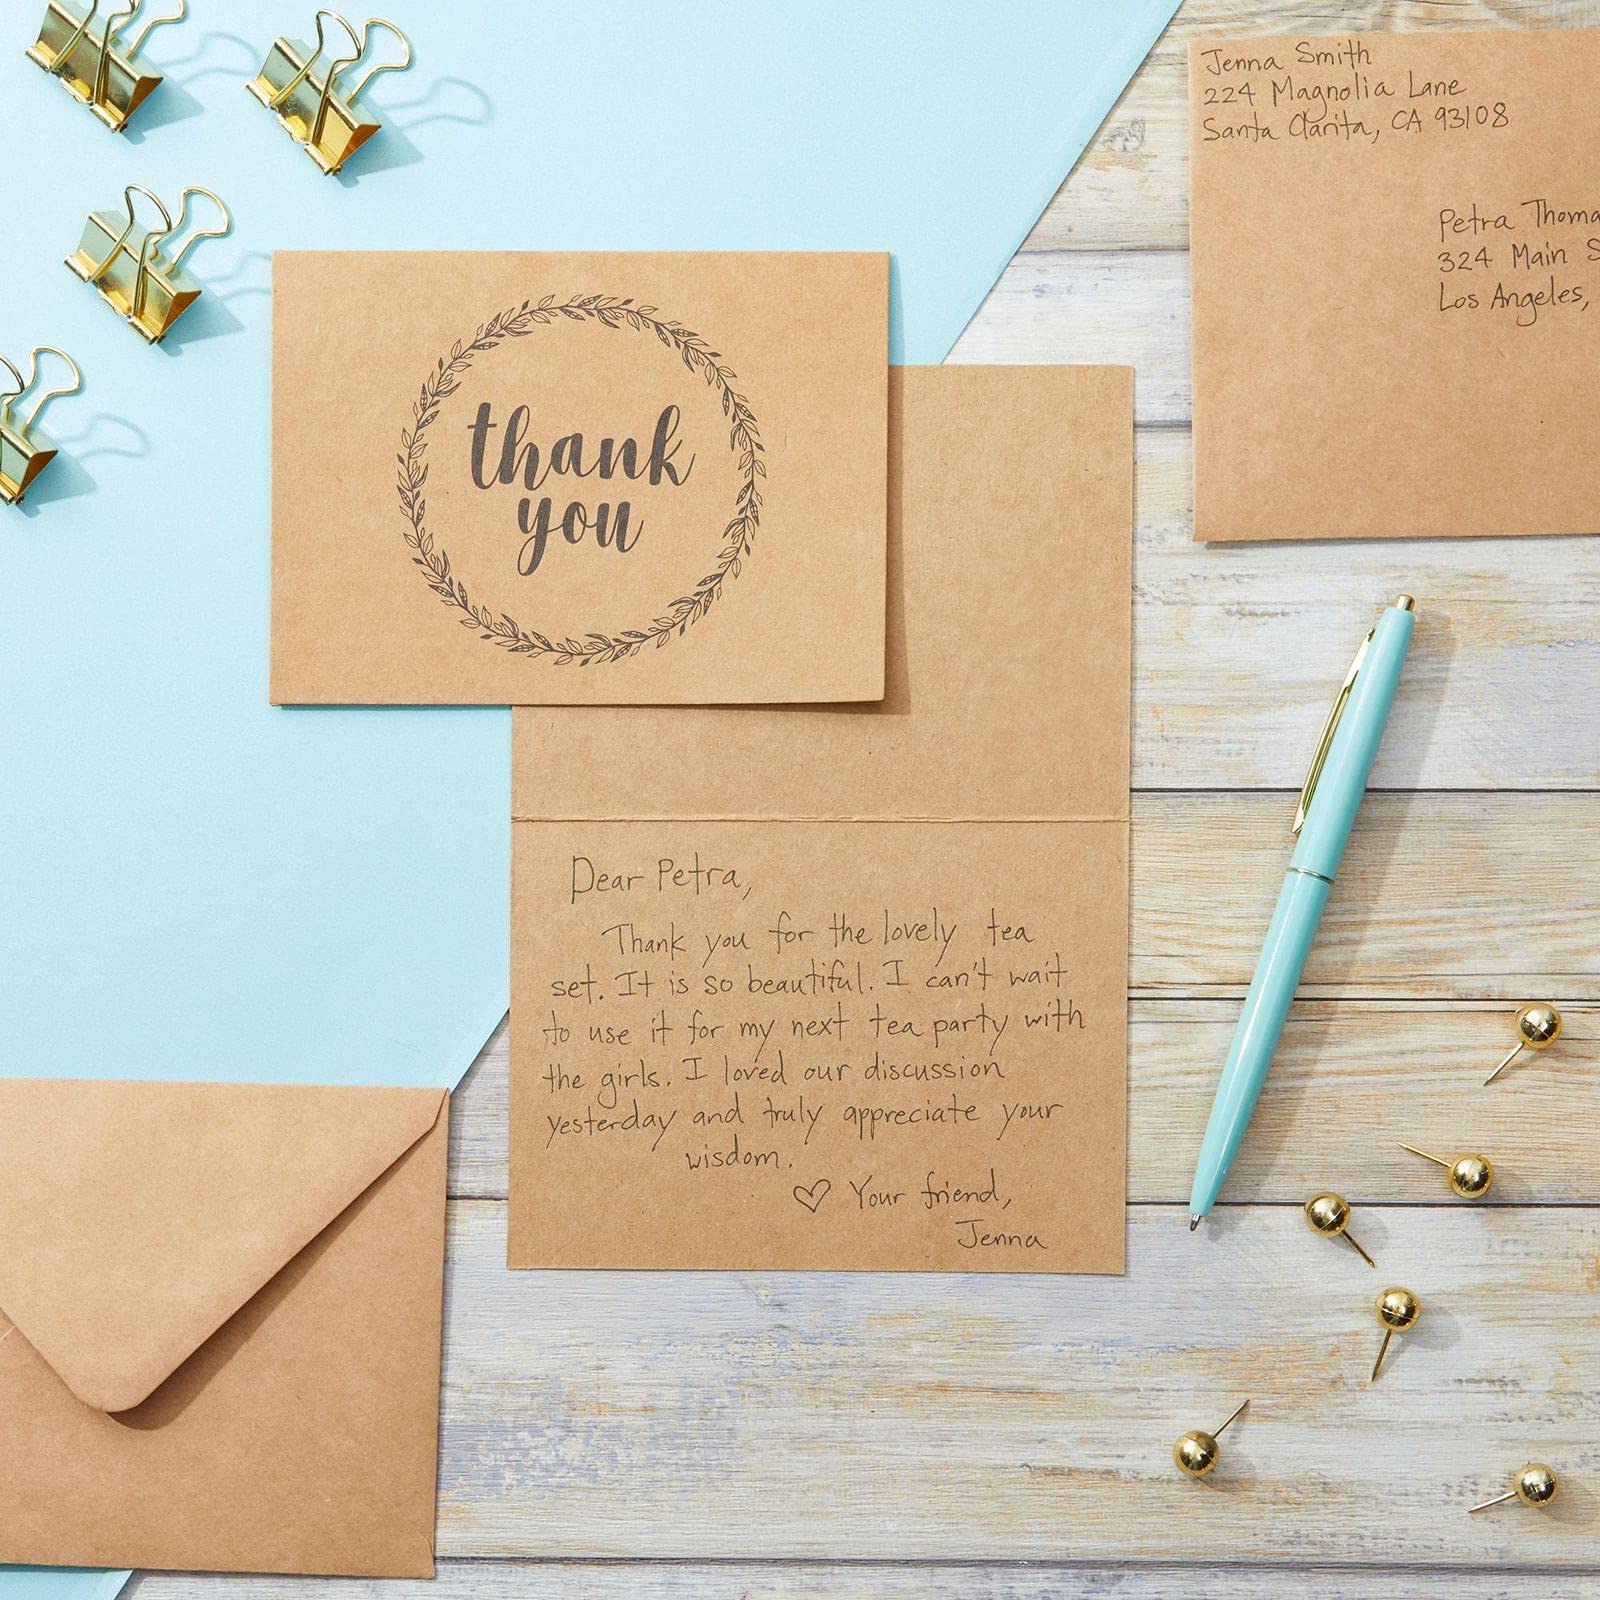 Jenna Smith
224 Magnolia Lane
Santa Clarita, CA 93108
Petra Thoma
324 Main S
Los Angeles,
thank
you
Dear Petra,
Thank you for the lovely tea
set. It is so beautiful. I can't wait
to use it for my next tea party with
the girls. I loved our discussion
yesterday and truly appreciate your
wisdom.
♡ Your friend,
Jenna